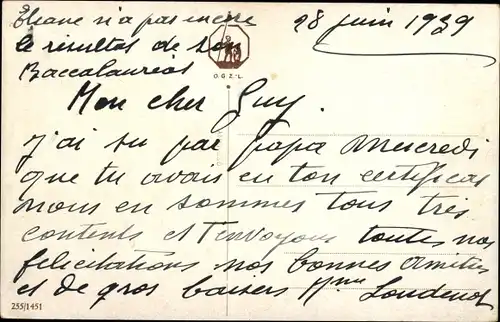 Eliane n'a pas encore
le résultat de son
Baccalauréat
28 juin 1939
O.G.Z.-L
Mon cher Guy.
J'ai su par papa Mercredi
que tu avais eu ton certificat
nous en sommes tous très
contents et t'envoyons toutes nos
félicitations nos bonnes amitiés
et de gros baisers Mme
255/1451